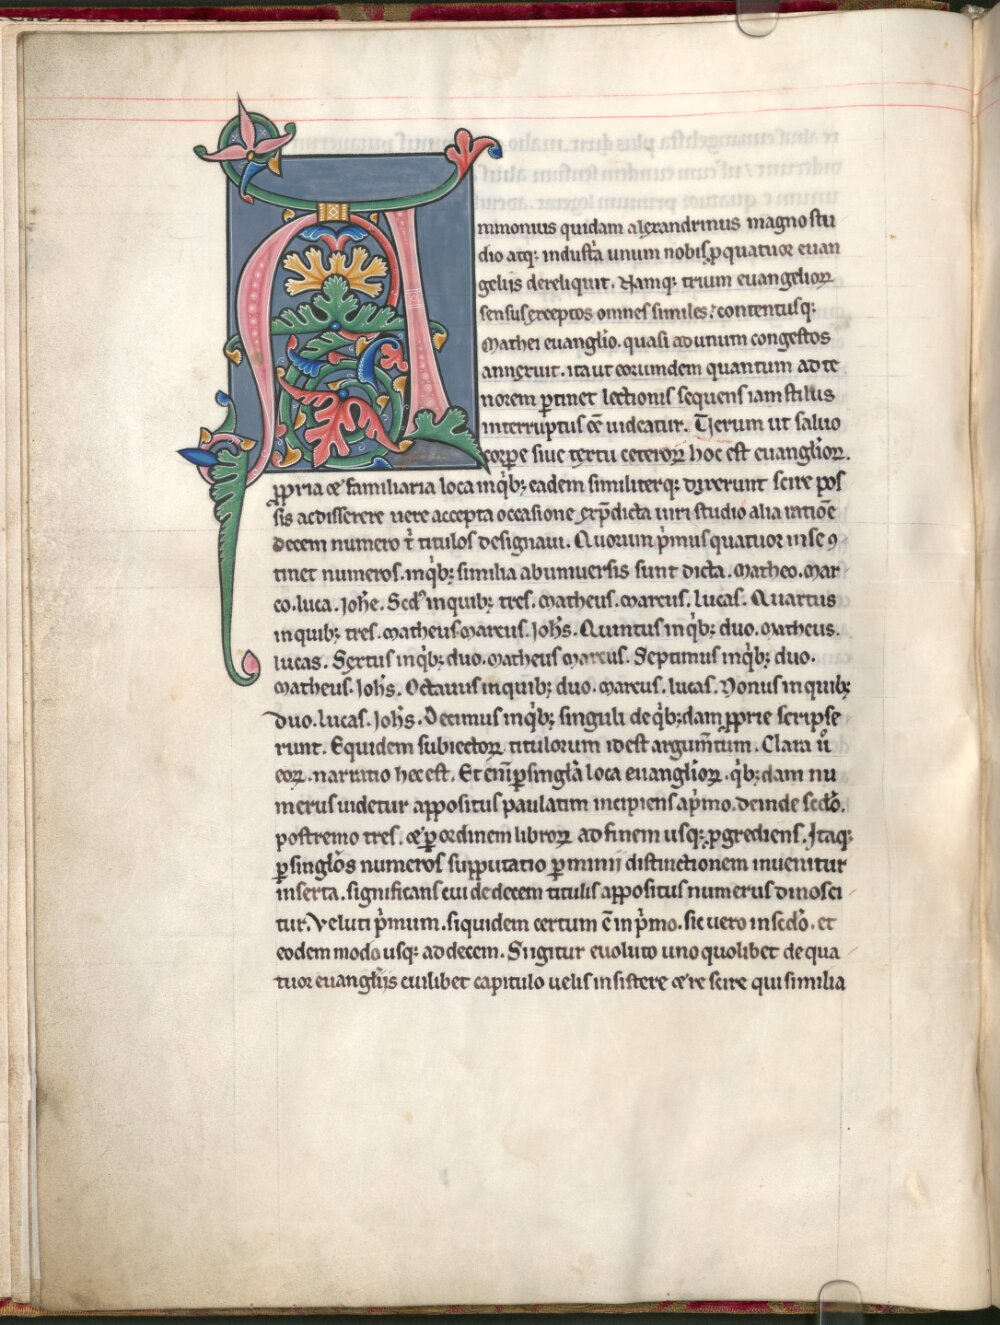 Ammonius quidam alexandrinus magno stu
dio atq; industͣa unum nobis ꝓ quatuor euan
gelijs dereliquit. Namq; trium euangelioꝝ
sensus exceptos omnes similes: contentusq;
Mathei euanglͥo. quasi ad unum congestos
annexuit. ita ut eorumdem quantum ad te
norem ꝑtinet lectionis sequens iam stilus
interruptus eē uideatur. Uerum ut saluo
corꝑe siue textu ceteroꝝ hoc est euanglͥoꝝ.
ꝓpria & familiaria loca in qͥbꝫ eadem similiterq; dixerunt scire pos
sis ac disserere uere accepta occasione ex p̄dicta uiri studio alia ratiōe
decem numero t̄ titulos designaui. Quorum pͥmus quatuor in se ꝯ
tinet numeros. in qͥbꝫ similia ab uniuersis sunt dicta. Matheo. Mar
co. luca. Joh̄e. Scd̄s in quibꝫ tres. Matheus. Marcus. Lucas. Quartus
in quibꝫ tres. Matheus. Marcus. Joh̄s. Quintus in qͥbꝫ duo. Matheus.
lucas. Sextus in qͥbꝫ duo. Matheus Marcus. Septimus in qͥbꝫ duo.
Matheus. Joh̄s. Octauus in quibꝫ duo. Marcus. lucas. Nonus in quibꝫ
duo. lucas. Joh̄s. Decimus in qͥbꝫ singuli de qͥbꝫdam ꝓprie scripse
runt. Equidem subiectoꝝ titulorum id est argum̄tum. Clara ū
eoꝝ. narratio hec est. Et eni᷑ ꝑ singlͣa loca euanglͥoꝝ. qͥbꝫdam nu
merus uidetur appositus paulatim incipiens a pͥmo. deinde scd̄o.
postremo tres. & ꝑ ordinem libroꝝ ad finem usq; ꝓgrediens. Itaq;
ꝑ singlͦos numeros supputatio ꝑ minij distinctionem inuenitur
inserta. significans cui de decem titulis appositus numerus dinosci
tur. Veluti pͥmum. siquidem certum ē in pͥmo. sic uero in scd̄o. et
eodem modo usq; ad decem. Si igitur euoluto uno quolibet de qua
tuor euanglͥijs cuilibet capitulo uelis insistere & re scire qui similia